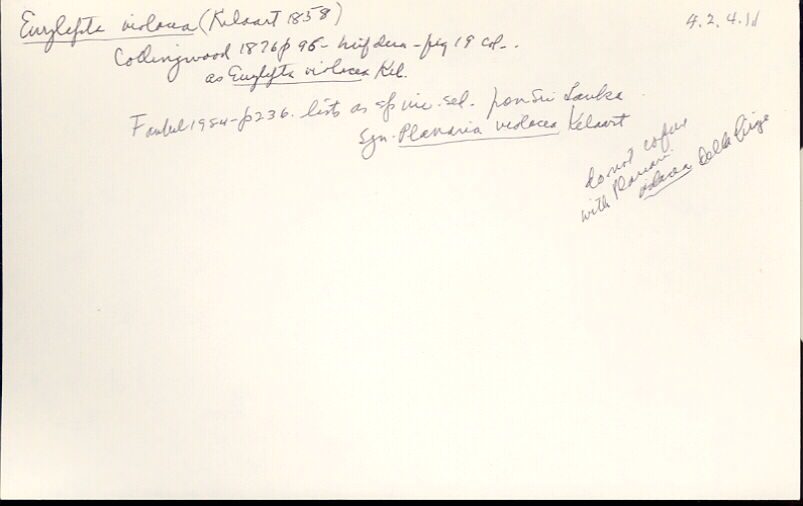 Eurylepta violacea (Kelaart 1858)
4.2.4.1d
Collingwood 1876 p 96 - fig 19 col..
as Eurylepta violacea Kel.
Faubel 1984 - p 236. lists as sp inc. sed. from Sri Lanka
Syn. Planaria violacea Kelaart
do not confuse
with Planaria
violacea Delle Chiaje